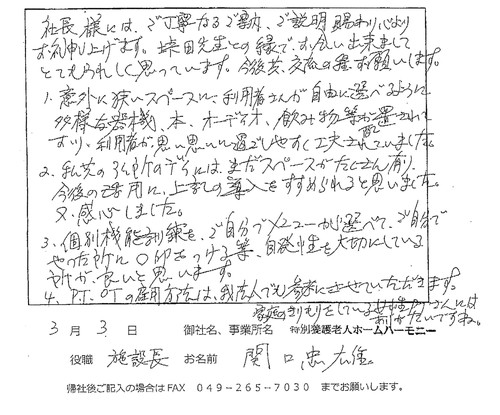 社長様には、ご丁寧なるご案内、ご説明賜わり心より
お礼申し上げます。 先生との縁で、お会い出来まして
とてもうれしく思っています。今後共、交流の程お願いします。
1. 意外に狭いスペースに、利用者さんが自由に選べるように
多様な器機、本、オーディオ、飲み物等が配置されて
おり、利用者が思い思いに過ごしやすく工夫されていました。
2. 私共の デイには、まだスペースがたくさん有り、
今後の活用に、上手く導入をすすめられると思いました。
又、感心しました。
3. 個別機能訓練を、ご自分でメニューから選べて、ご自分で
やった所に〇印をつける等、自発性を大切にしている
所が、良いと思います。
4. PT、OTの雇用方法は、我法人でも参考にさせていただきます。
3月 3日 御社名、事業所名 特別養護老人ホームハーモニー
役職 施設長 お名前 関口忠雄
帰社後ご記入の場合はFAX 049-265-7030 までお願いします。